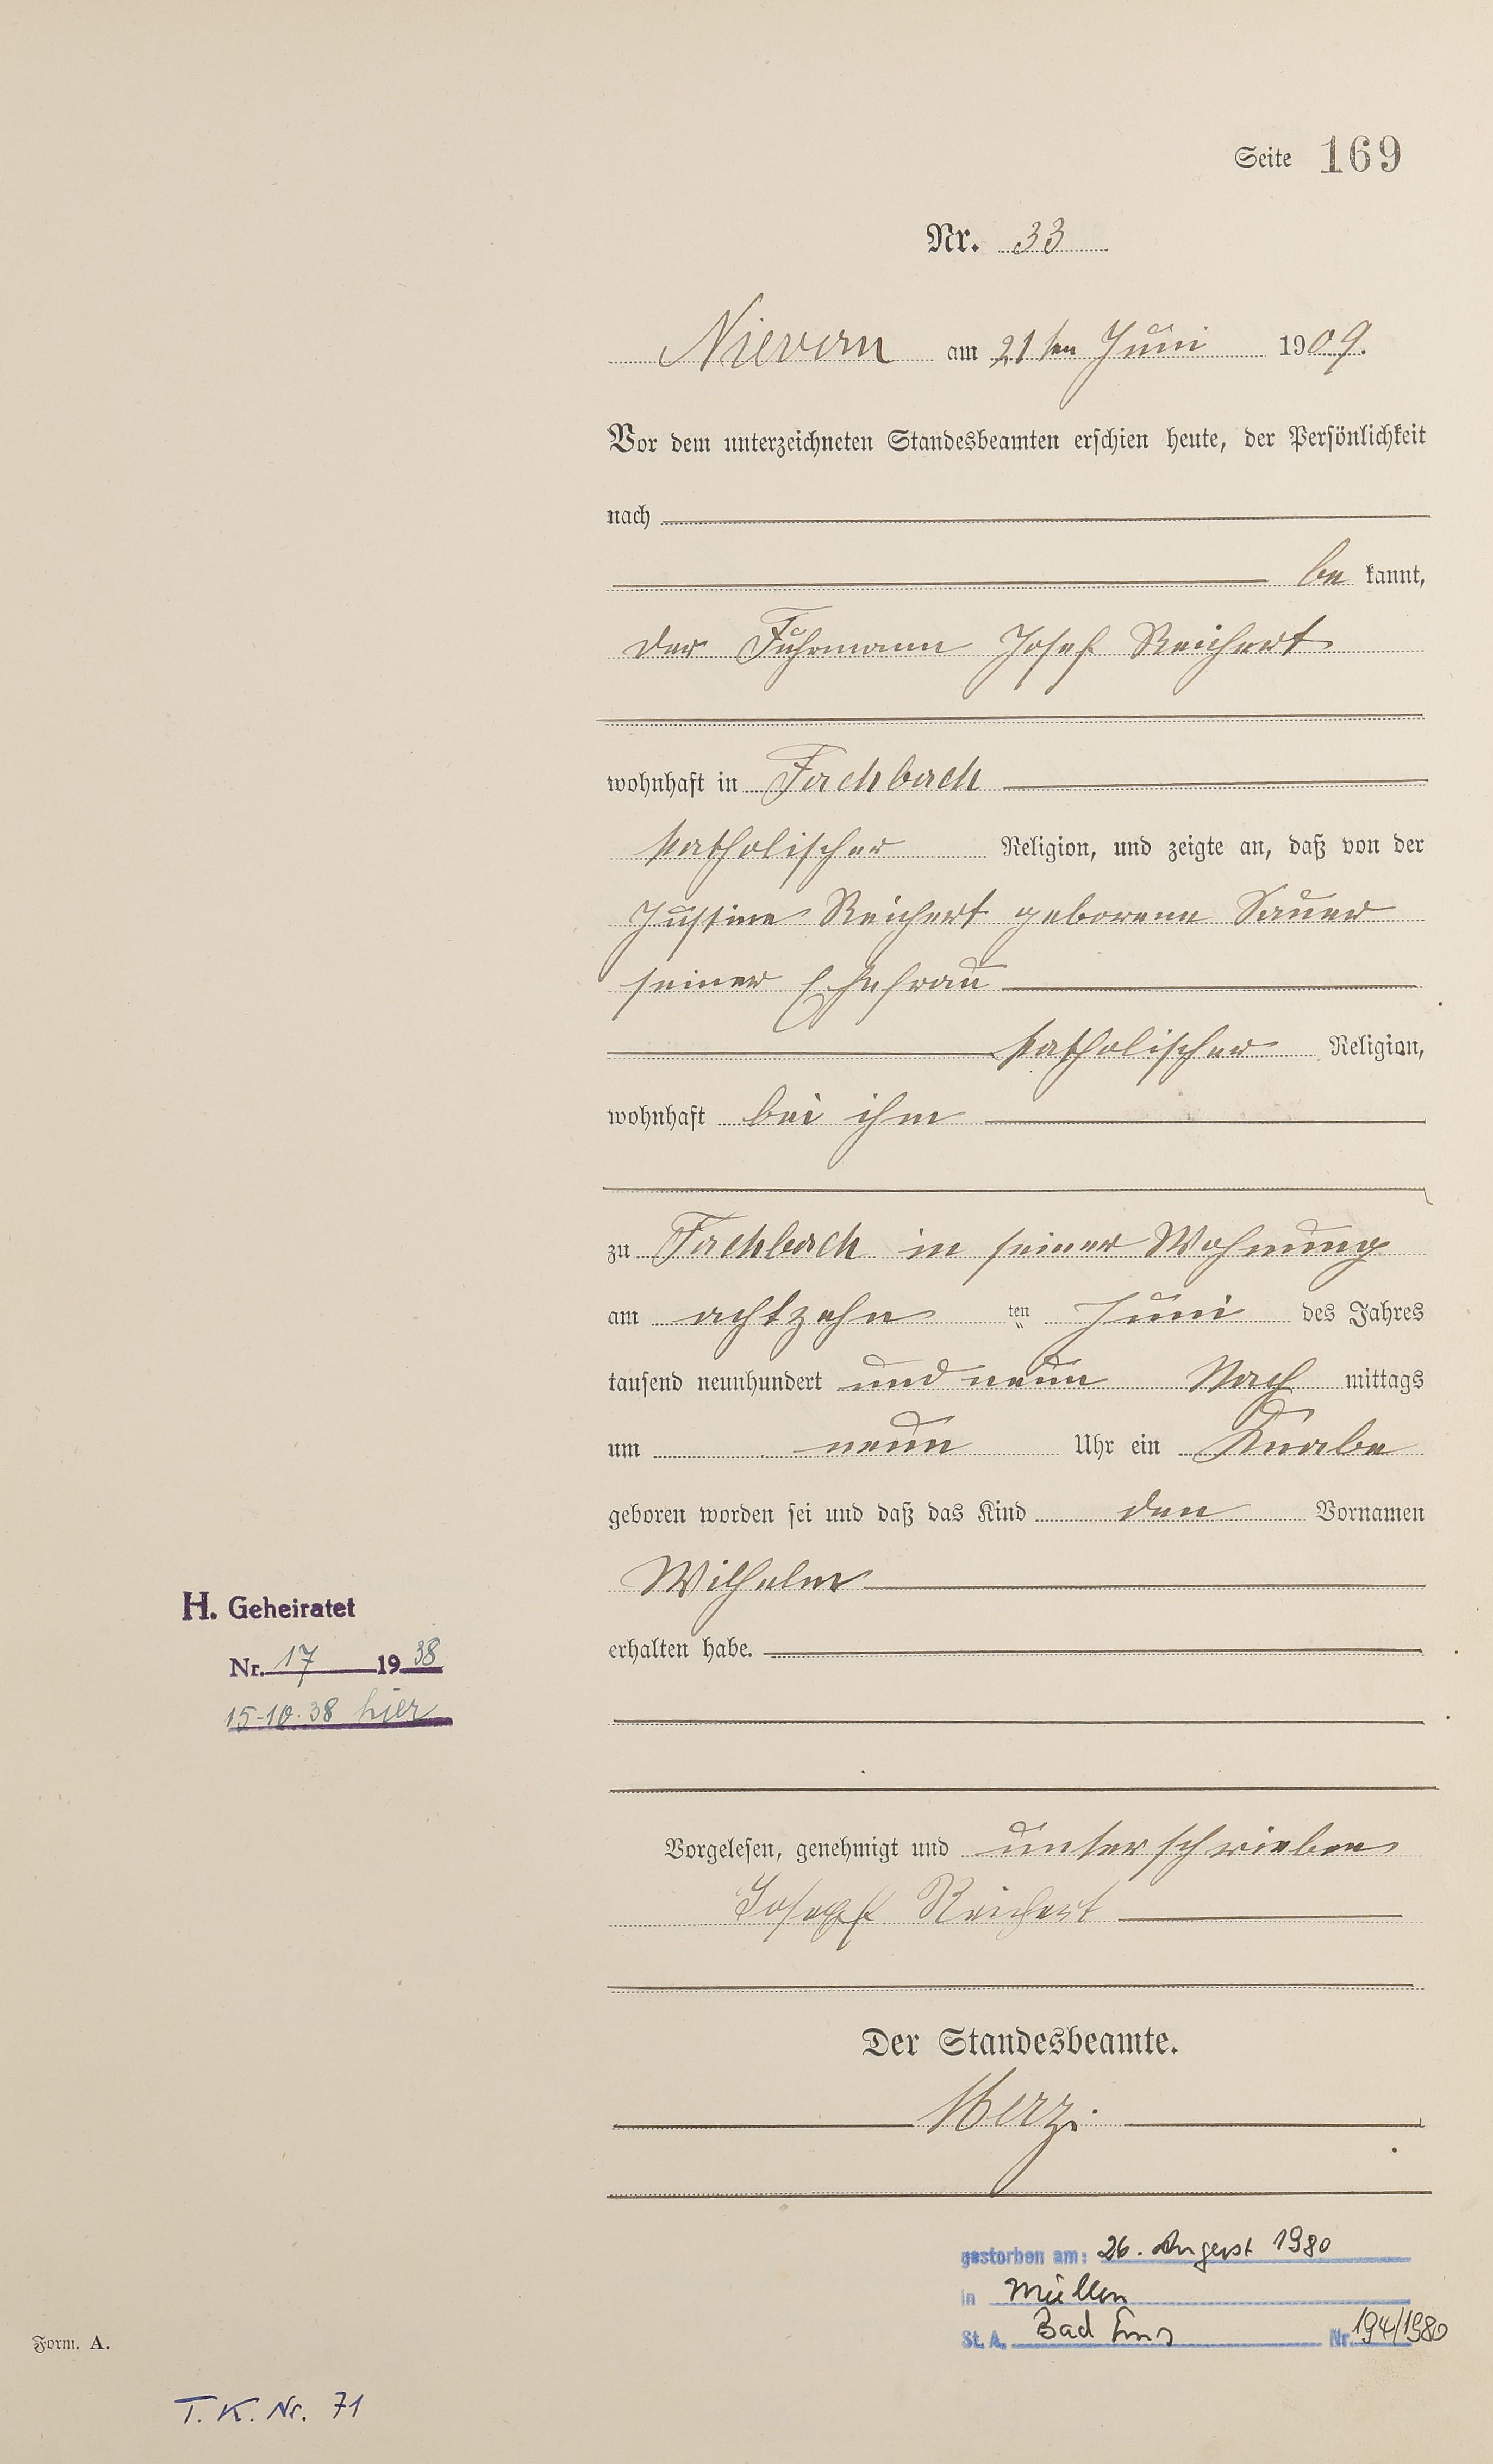 Seite 169
Nr. 33
Nievern am 21ten Juni 1909.
Vor dem unterzeichneten Standesbeamten erschien heute, der Persönlichkeit
nach
be kannt,
der Fuhrmann Josef Reichert
wohnhaft in Fachbach
katholischer Religion, und zeigte an, daß von der
Justine Reichert geborene Sauer
seiner Ehefrau
katholischer Religion,
wohnhaft bei ihm
zu Fachbach in seiner Wohnung
am achtzehn ten Juni des Jahres
tausend neunhundert und neun Nach mittags
um neun Uhr ein Knabe
geboren worden sei und daß das Kind den Vornamen
Wilhelm
erhalten habe.
H. Geheiratet
Nr. 17 1938
15-10.38 hier
Vorgelesen, genehmigt und unterschrieben
Joseph Reichert
Der Standesbeamte.
Merz.
gestorben am: 26. August 1980
in
St. A. Bad Ems Nr. 194/1980
Form. A.
T. K. Nr. 71